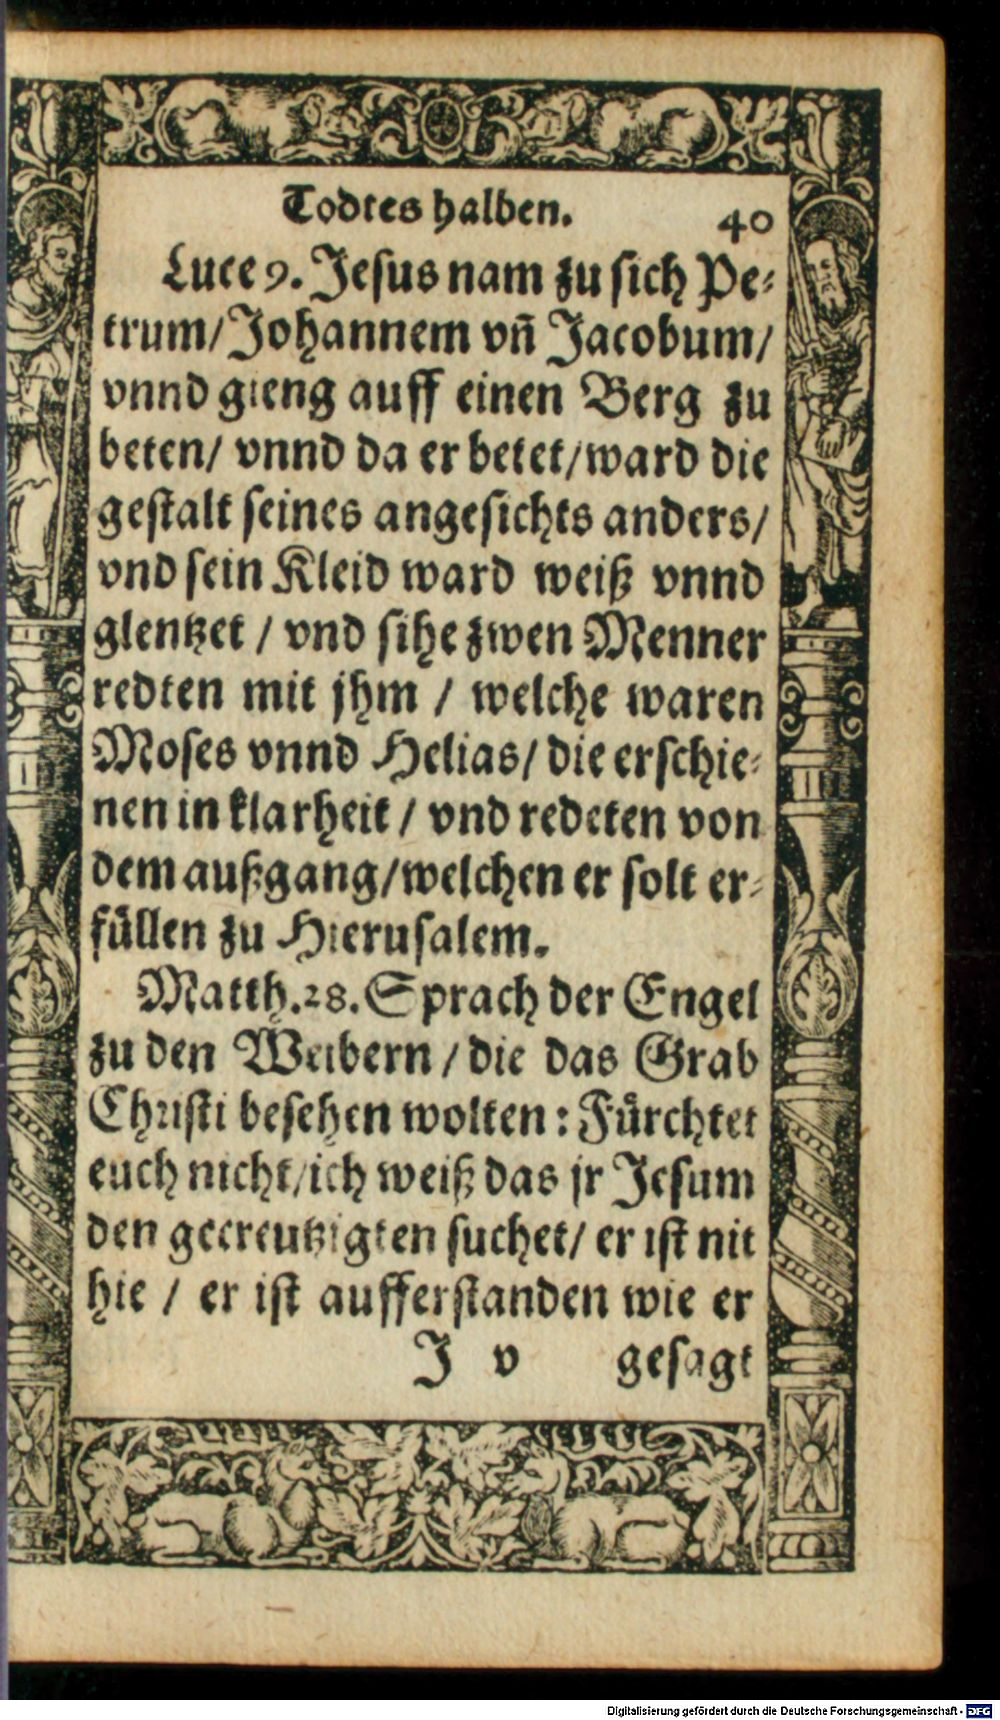 Todtes halben. 40
Luce 9. Jesus nam zu sich Pe-
trum/ Johannem vñ Jacobum/
vnnd gieng auff einen Berg zu
beten/ vnnd da er betet/ ward die
gestalt seines angesichts anders/
vnd sein Kleid ward weiß vnnd
glentzet / vnd sihe zwen Menner
redten mit jhm / welche waren
Moses vnnd Helias/ die erschie-
nen in klarheit / vnd redeten von
dem außgang/ welchen er solt er-
füllen zu Hierusalem.
Matth. 28. Sprach der Engel
zu den Weibern / die das Grab
Christi besehen wolten: Fürchtet
euch nicht/ ich weiß das jr Jesum
den gecreutzigten suchet/ er ist nit
hie / er ist aufferstanden wie er
J v gesagt
Digitalisierung gefördert durch die Deutsche Forschungsgemeinschaft - DFG